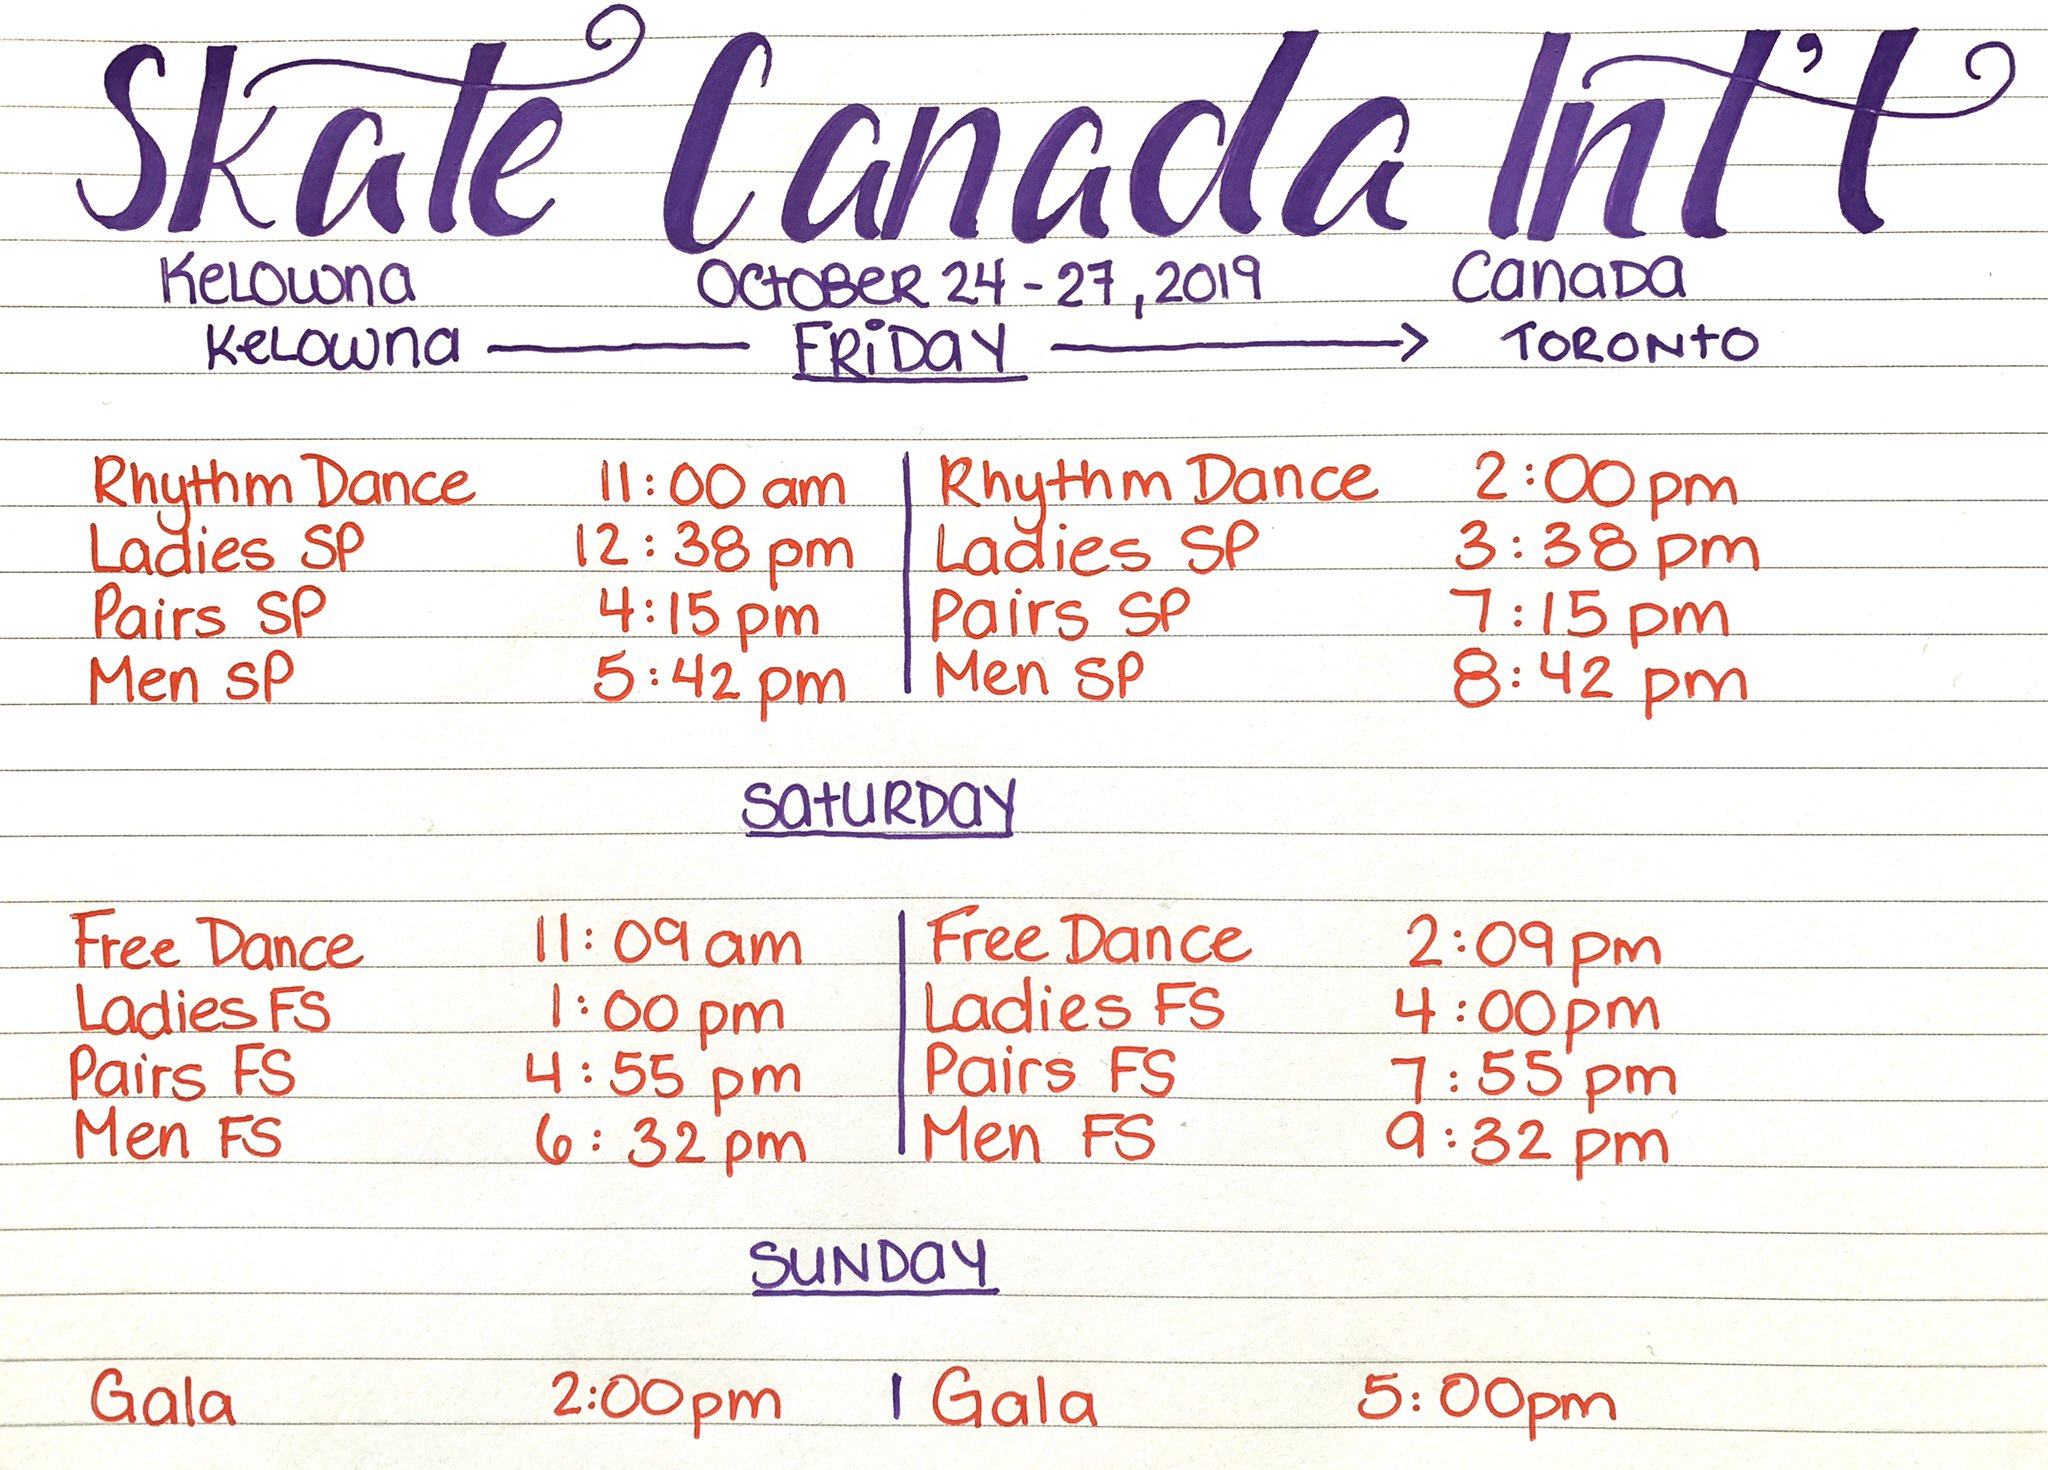 Skate Canada Int'l
Kelowna October 24-27, 2019 Canada
Kelowna Friday Toronto
Rhythm Dance 11:00 am Rhythm Dance 2:00 pm
Ladies SP 12:38 pm Ladies SP 3:38 pm
Pairs SP 4:15 pm Pairs SP 7:15 pm
Men SP 5:42 pm Men SP 8:42 pm
Saturday
Free Dance 11:09 am Free Dance 2:09 pm
Ladies FS 1:00 pm Ladies FS 4:00 pm
Pairs FS 4:55 pm Pairs FS 7:55 pm
Men FS 6:32 pm Men FS 9:32 pm
Sunday
Gala 2:00pm Gala 5:00pm